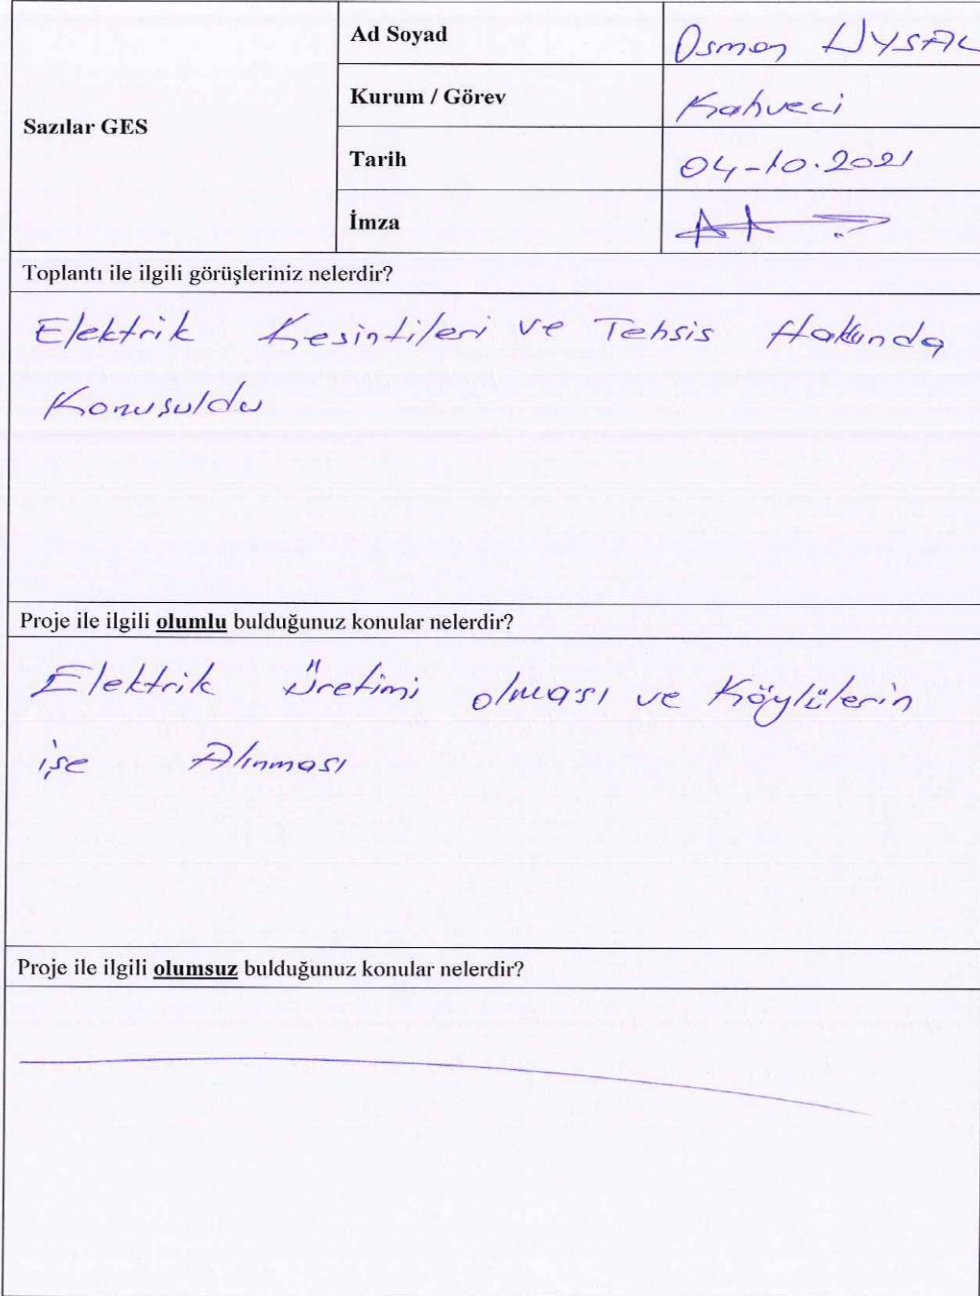 Ad Soyad
Osman UYSAL
Kurum / Görev
Kahveci
Sazılar GES
Tarih
04-10.2021
İmza
Toplantı ile ilgili görüşleriniz nelerdir?
Elektrik Kesintileri ve Tehsis Hakkında
Konusuldu
Proje ile ilgili olumlu bulduğunuz konular nelerdir?
Elektrik üretimi olması ve Köylülerin
işe Alınması
Proje ile ilgili olumsuz bulduğunuz konular nelerdir?